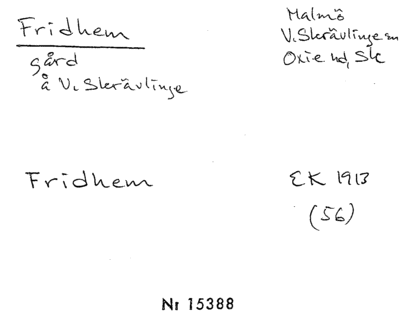 Fridhem
gård
å V. Skrävlinge
Malmö
V. Skrävlinge sn
Oxie hd, Sk
Fridhem
EK 1913
(56)
Nr 15388